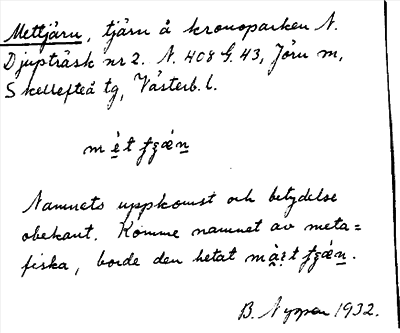 Mettjärn, tjärn å kronoparken N.
Djupträsk nr 2. N. 408 G. 43, Jörn sn,
Skellefteå tg, Västerb. l.
Namnets uppkomst och betydelse
obekant. Komme namnet av meta=
fiska, borde den hetat
B. Nyman 1932.